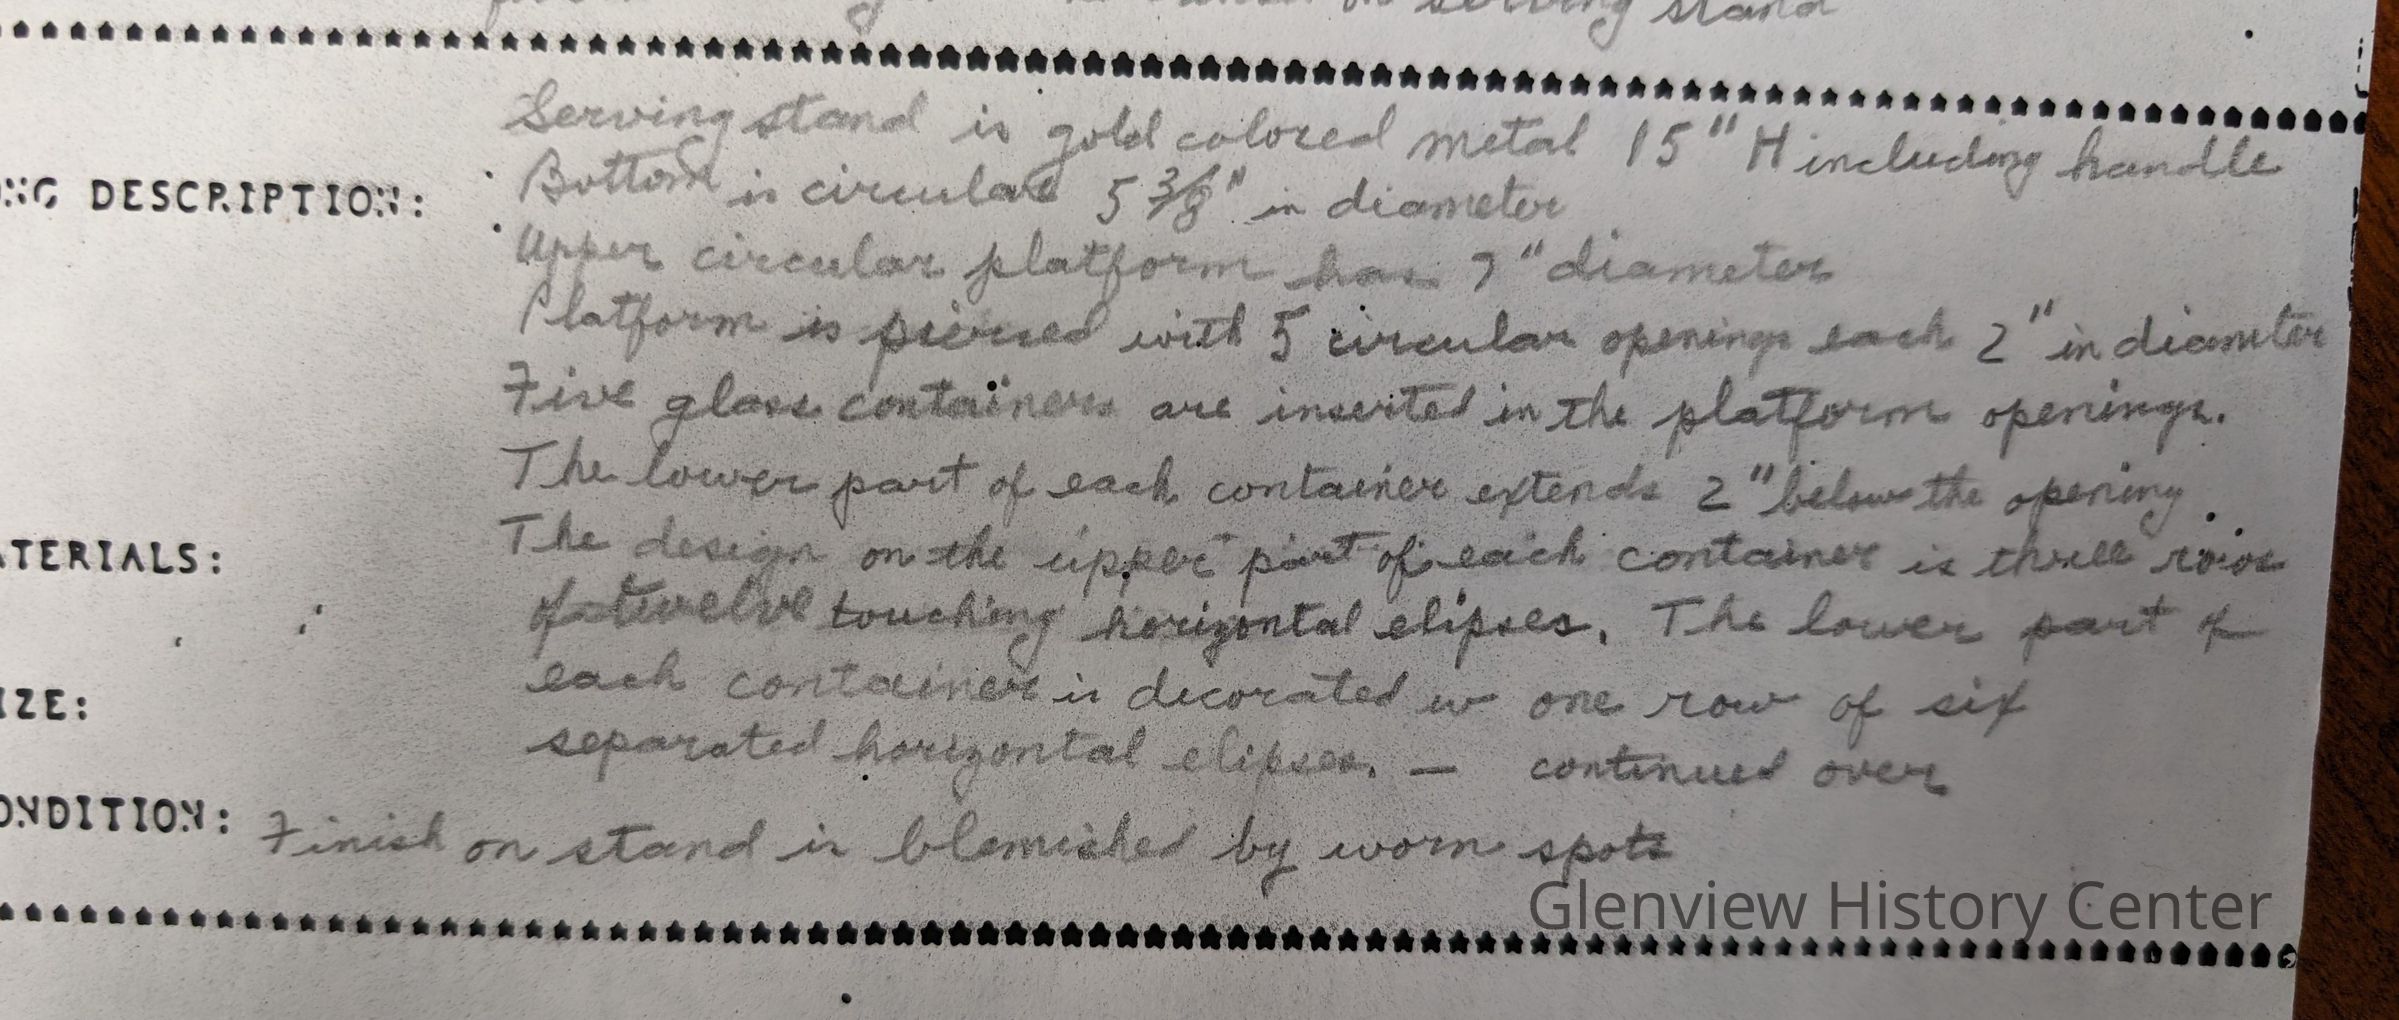 on serving stand
Serving stand is gold colored metal 15" H including handle
NG DESCRIPTION: Bottom is circular 5 3/8" in diameter
Upper circular platform has 7" diameter
Platform is pierced with 5 circular openings each 2" in diameter
Five glass containers are inserted in the platform openings.
The lower part of each container extends 2" below the opening
ATERIALS: The design on the upper part of each container is three rows
of twelve touching horizontal elipses. The lower part of
each container is decorated w one row of six
IZE:
separated horizontal elipses. — continued over
ONDITION: Finish on stand is blemished by worn spots
Glenview History Center